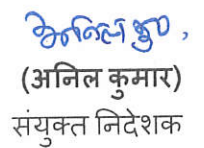 अनिल कु,
(अनिल कुमार)
संयुक्त निदेशक